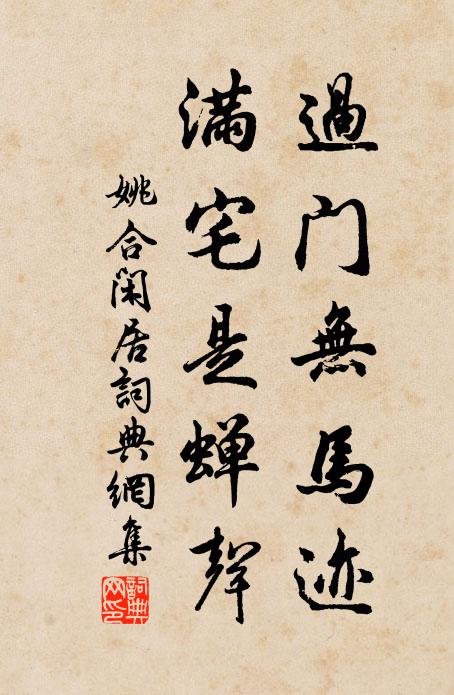 過门無馬迹
滿宅是蝉聲
姚合閑居詞典網集
詞典网印